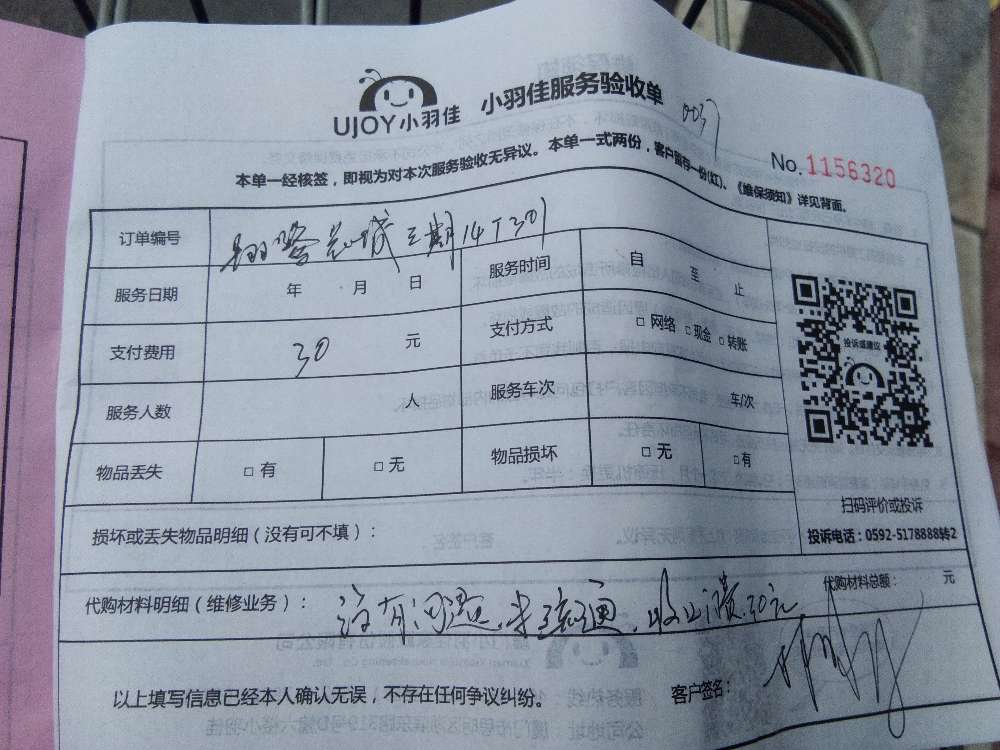 UJOY小羽佳 小羽佳服务验收单 0037
No.1156320
本单一经核签，即视为对本次服务验收无异议。本单一式两份，客户留存一份(红)、《维保须知》详见背面。
订单编号 三期14T301
服务日期 年 月 日 服务时间 自 至 止
支付费用 30 元 支付方式 □ 网络 □ 现金 □ 转账
服务人数 人 服务车次 车/次
物品丢失 □ 有 □ 无 物品损坏 □ 无 □ 有
投诉或建议
扫码评价或投诉
投诉电话：0592-5178888转2
损坏或丢失物品明细（没有可不填）：
代购材料总额： 元
代购材料明细（维修业务）： 没有问题，未疏通，收上门费30元
以上填写信息已经本人确认无误，不存在任何争议纠纷。 客户签名：